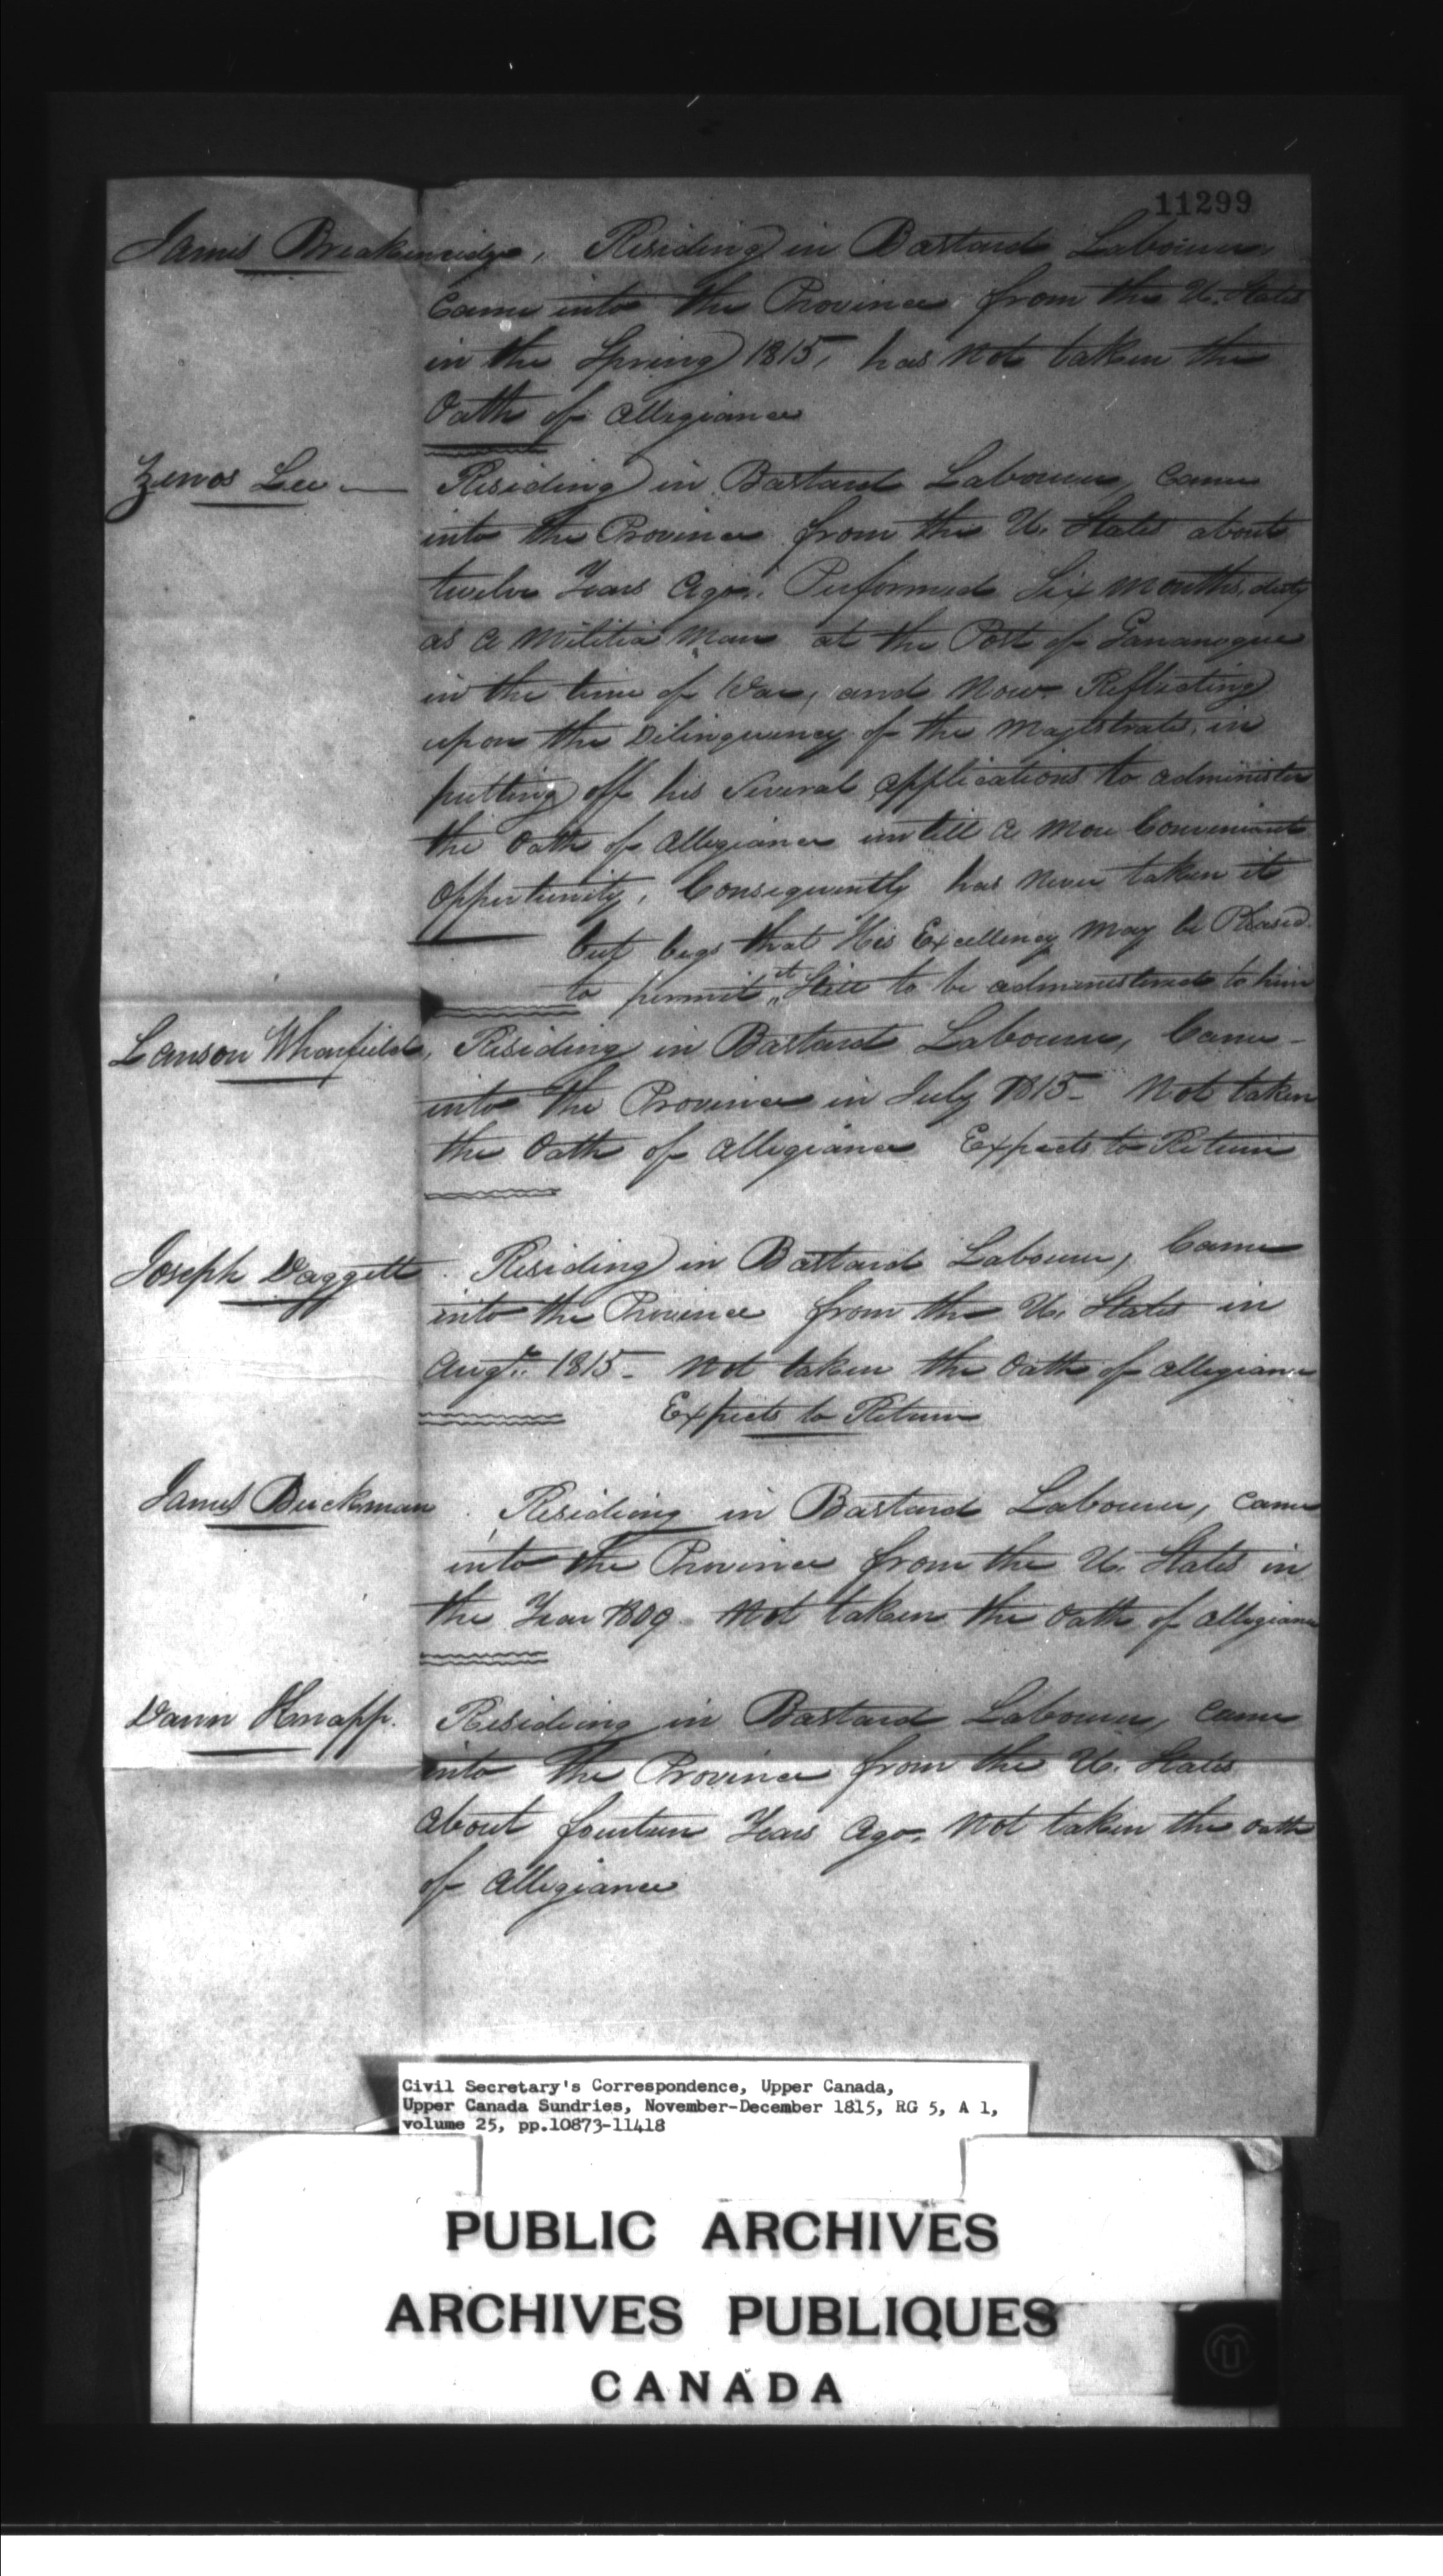 11299
James Breakenridge, Residing in Bastard Labourer,
Came into the Province from the U. States
in the Spring 1815, has not taken the
Oath of Allegiance
Zenos Lee — Residing in Bastard Labourer, Came
into the Province from the U. States about
twelve Years Ago. Performed Six Months duty
as a Militia Man at the Post of Gananoque
in the time of War, and Now Reflecting
upon the Dilinquency of the Magistrate, in
putting off his several applications to administer
the Oath of Allegiance untill a More Convenient
Oppertunity, Consequently has Never taken it
but begs that His Excellency May be Pleased
to permit it Still to be administered to him
Lanson Wharfield, Residing in Bastard Labourer, Came
into the Province in July 1815 - Not taken
the Oath of Allegiance Expects to Return
Joseph Daggett. Residing in Bastard Labourer, Came
into the Province from the U. States in
Augt. 1815 - Not taken the Oath of Allegiance
Expects to Return
James Buckman. Residing in Bastard Labourer, Came
into the Province from the U. States in
the Year 1809. Not taken the Oath of Allegiance
Knapp. Residing in Bastard Labourer, Came
into the Province from the U. States
about fourteen Years Ago. Not taken the Oath
of Allegiance
Civil Secretary's Correspondence, Upper Canada,
Upper Canada Sundries, November-December 1815, RG 5, A 1,
volume 25, pp.10873-11418
PUBLIC ARCHIVES
ARCHIVES PUBLIQUES
CANADA